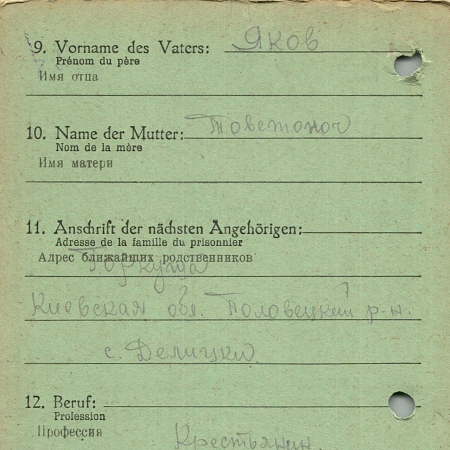 9. Vorname des Vaters: Яков
Prénom du père
Имя отца
10. Name der Mutter:
Nom de la mère
Имя матери
11. Anschrift der nächsten Angehörigen:
Adresse de la famille du prisonnier
Адрес ближайших родственников
Горкуша
Киевская обл. Половецкий р-н.
с.
12. Beruf:
Profession
Профессия
Крестьянин.